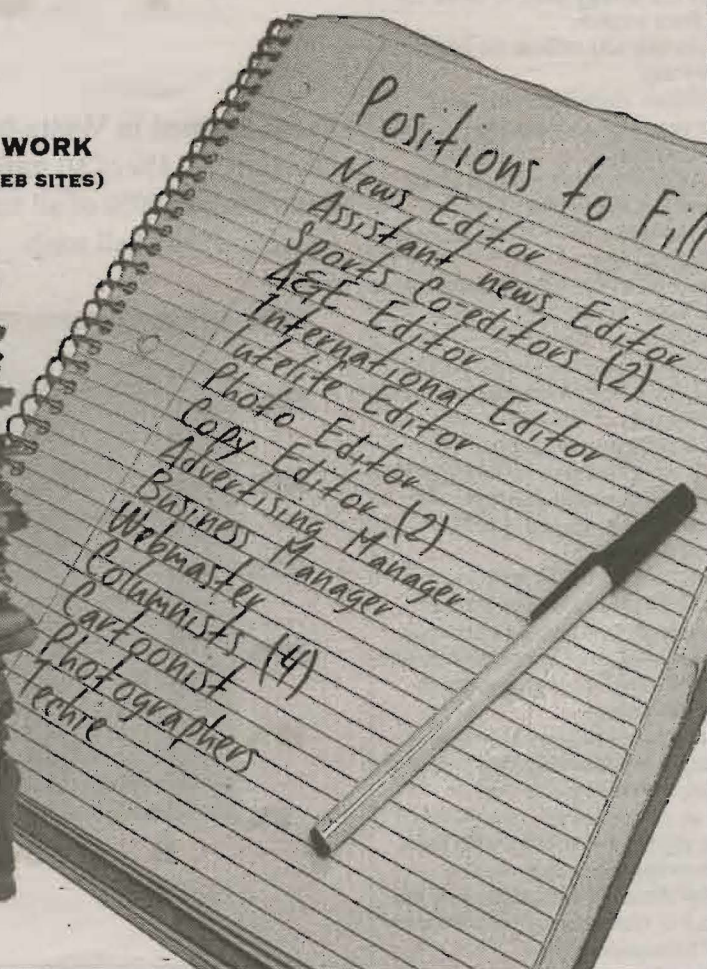 WORK
EB SITES)
Positions to Fill
News Editor
Assistant news Editor
Sports Co-editors (2)
A&E Editor
International Editor
Lutelife Editor
Photo Editor
Copy Editor (2)
Advertising Manager
Business Manager
Webmaster
Columnists (4)
Cartoonist
Photographers
Techie